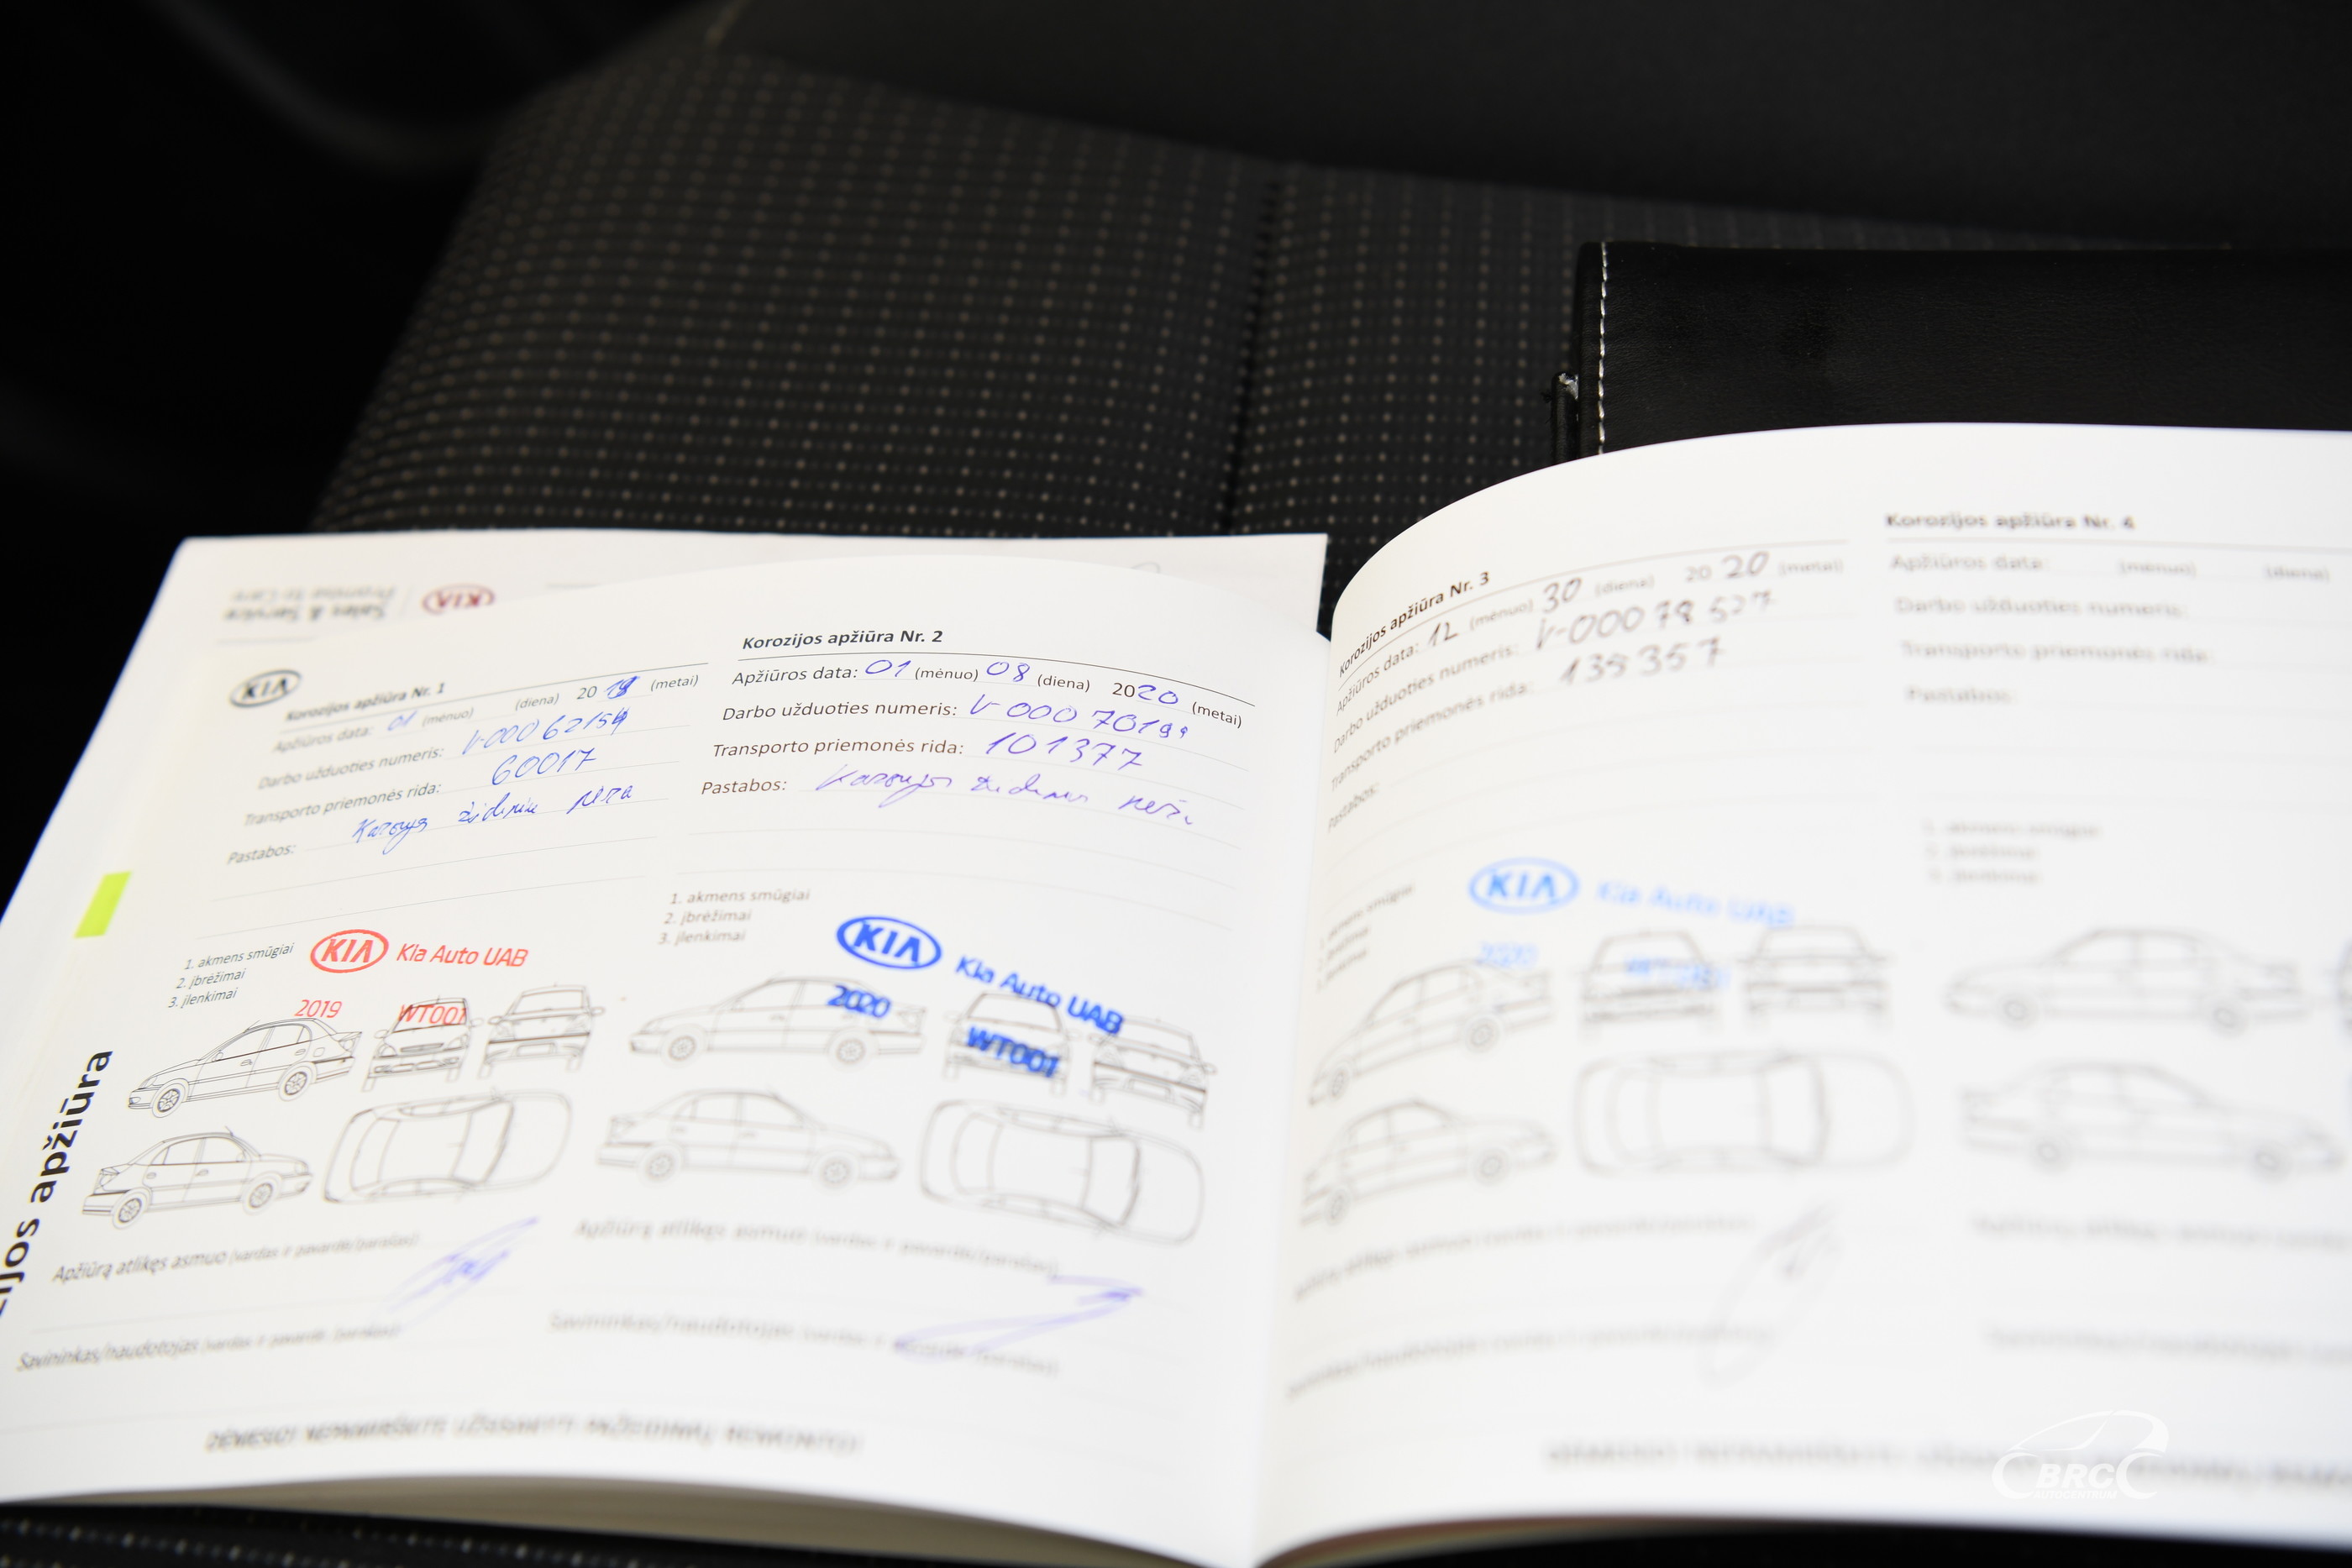 KIA
Korozijos apžiūra Nr. 1
Apžiūros data: 01 (mėnuo) (diena) 20 19 (metai)
Darbo užduoties numeris: V-00062154
Transporto priemonės rida: 60017
Pastabos: židinių nėra
1. akmens smūgiai
2. įbrėžimai
3. įlenkimai
KIA Kia Auto UAB
2019 WT001
Apžiūrą atlikęs asmuo (vardas ir pavardė/parašas):
Savininkas/naudotojas (vardas ir pavardė/parašas):
Korozijos apžiūra Nr. 2
Apžiūros data: 01 (mėnuo) 08 (diena) 2020 (metai)
Darbo užduoties numeris: V-00070199
Transporto priemonės rida: 101377
Pastabos:
1. akmens smūgiai
2. įbrėžimai
3. įlenkimai
KIA Kia Auto UAB
2020 WT001
Apžiūrą atlikęs asmuo (vardas ir pavardė/parašas):
Savininkas/naudotojas (vardas ir pavardė/parašas):
apžiūra
KIA
Sales & Service
Promise to Care
Korozijos apžiūra Nr. 3
Apžiūros data: 12 (mėnuo) 30 (diena) 20 20 (metai)
Darbo užduoties numeris: V-00078527
Transporto priemonės rida: 139357
Pastabos:
KIA Kia Auto UAB
2020
Korozijos apžiūra Nr. 4
Apžiūros data: (mėnuo) (diena)
Darbo užduoties numeris:
Transporto priemonės rida:
Pastabos:
1. akmens smūgiai
2. įbrėžimai
3. įlenkimai
BRC
AUTOCENTRUM